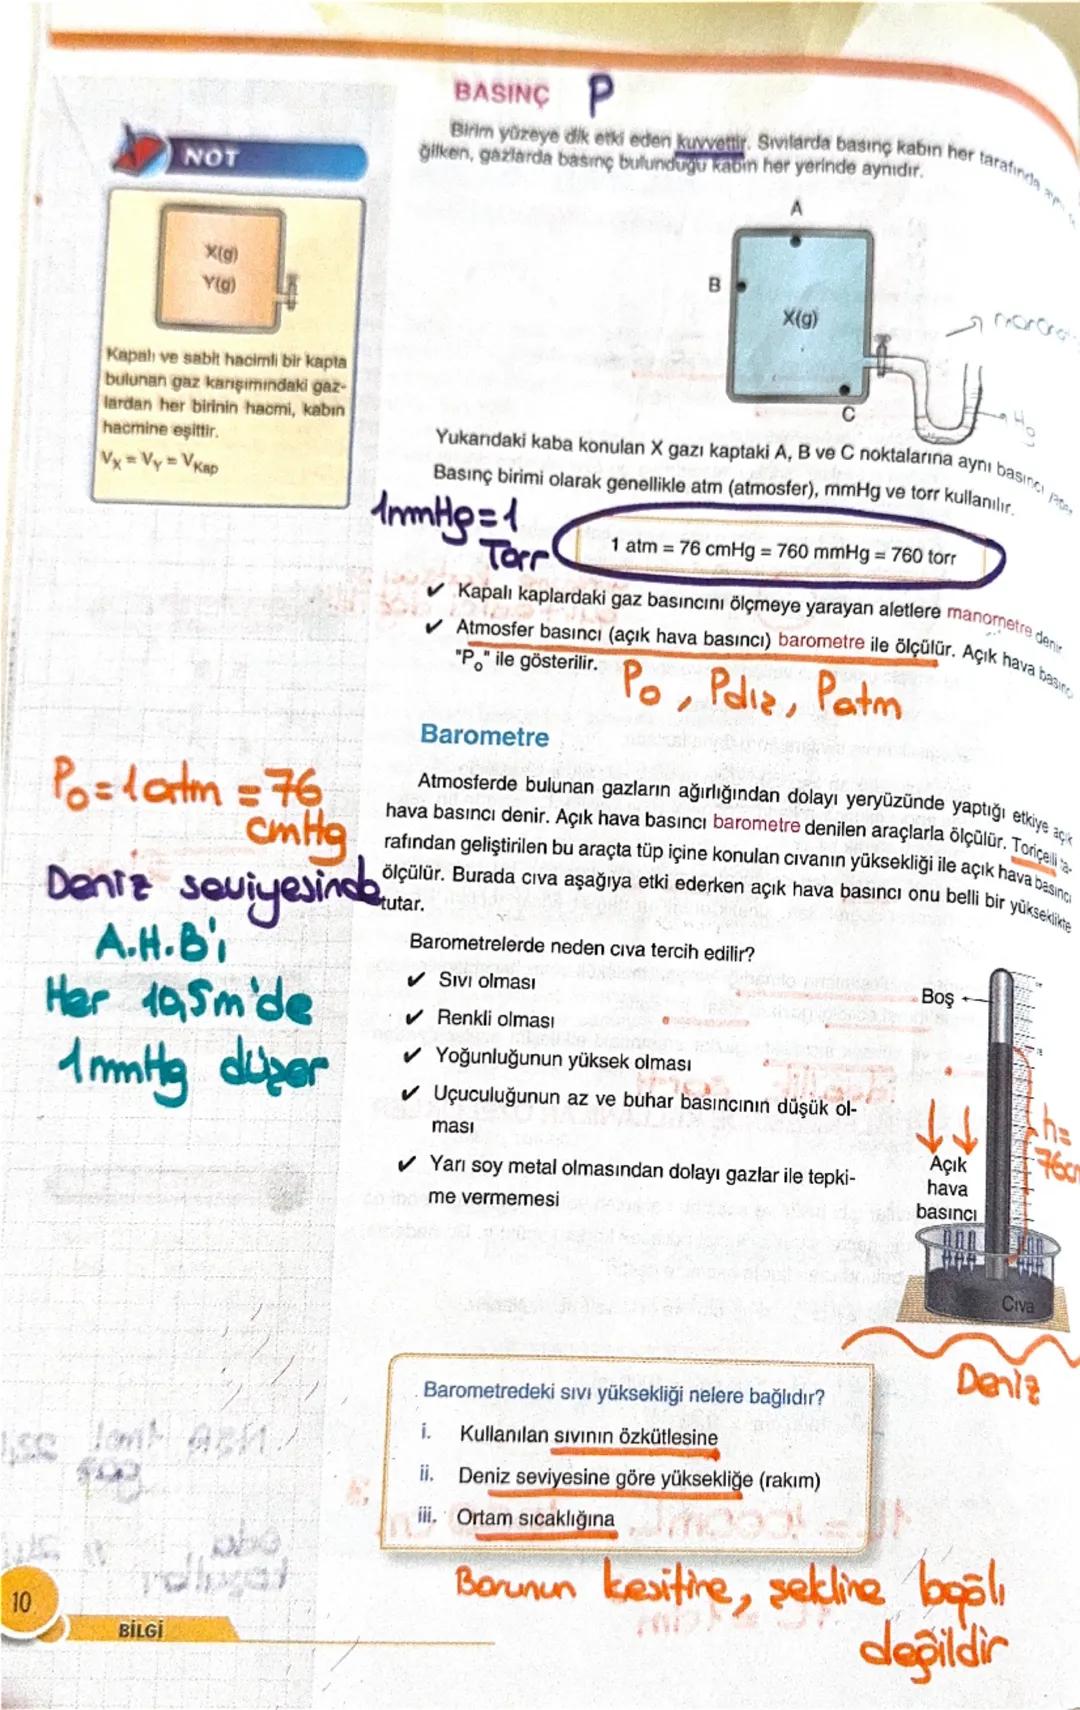 BASINÇ P
Birim yüzeye dik etki eden kuvvettir. Sıvılarda basınç kabın her tarafında aynı
ğilken, gazlarda basınç bulunduğu kabın her yerinde aynıdır.
NOT
X(g)
Y(g)
Kapalı ve sabit hacimli bir kapta
bulunan gaz karışımındaki gaz-
lardan her birinin hacmi, kabın
hacmine eşittir.
VX = VY = VKap
A
B
X(g)
C
Yukarıdaki kaba konulan X gazı kaptaki A, B ve C noktalarına aynı basıncı
Basınç birimi olarak genellikle atm (atmosfer), mmHg ve torr kullanılır.
1mmHg=1
Torr
1 atm = 76 cmHg = 760 mmHg = 760 torr
✔ Kapalı kaplardaki gaz basıncını ölçmeye yarayan aletlere manometre denir
✔ Atmosfer basıncı (açık hava basıncı) barometre ile ölçülür. Açık hava basıncı
"Po" ile gösterilir.
Po, Pdız, Patm
Barometre
Atmosferde bulunan gazların ağırlığından dolayı yeryüzünde yaptığı etkiye açık
hava basıncı denir. Açık hava basıncı barometre denilen araçlarla ölçülür. Toriçelli ta-
rafından geliştirilen bu araçta tüp içine konulan cıvanın yüksekliği ile açık hava basıncı
ölçülür. Burada cıva aşağıya etki ederken açık hava basıncı onu belli bir yükseklikte
tutar.
Po=1atm=76
cmHg
Deniz seviyesinde
A.H.B'i
Her 10,5m'de
1mmHg düşer
Barometrelerde neden cıva tercih edilir?
✔ Sıvı olması
✔ Renkli olması
✔ Yoğunluğunun yüksek olması
✔ Uçuculuğunun az ve buhar basıncının düşük ol-
ması
✔ Yarı soy metal olmasından dolayı gazlar ile tepki-
me vermemesi
Boş
h=
76cm
Açık
hava
basıncı
Cıva
Deniz
Barometredeki sıvı yüksekliği nelere bağlıdır?
i. Kullanılan sıvının özkütlesine
ii. Deniz seviyesine göre yüksekliğe (rakım)
iii. Ortam sıcaklığına
Borunun kesitine, şekline bağlı
değildir
10
BİLGİ